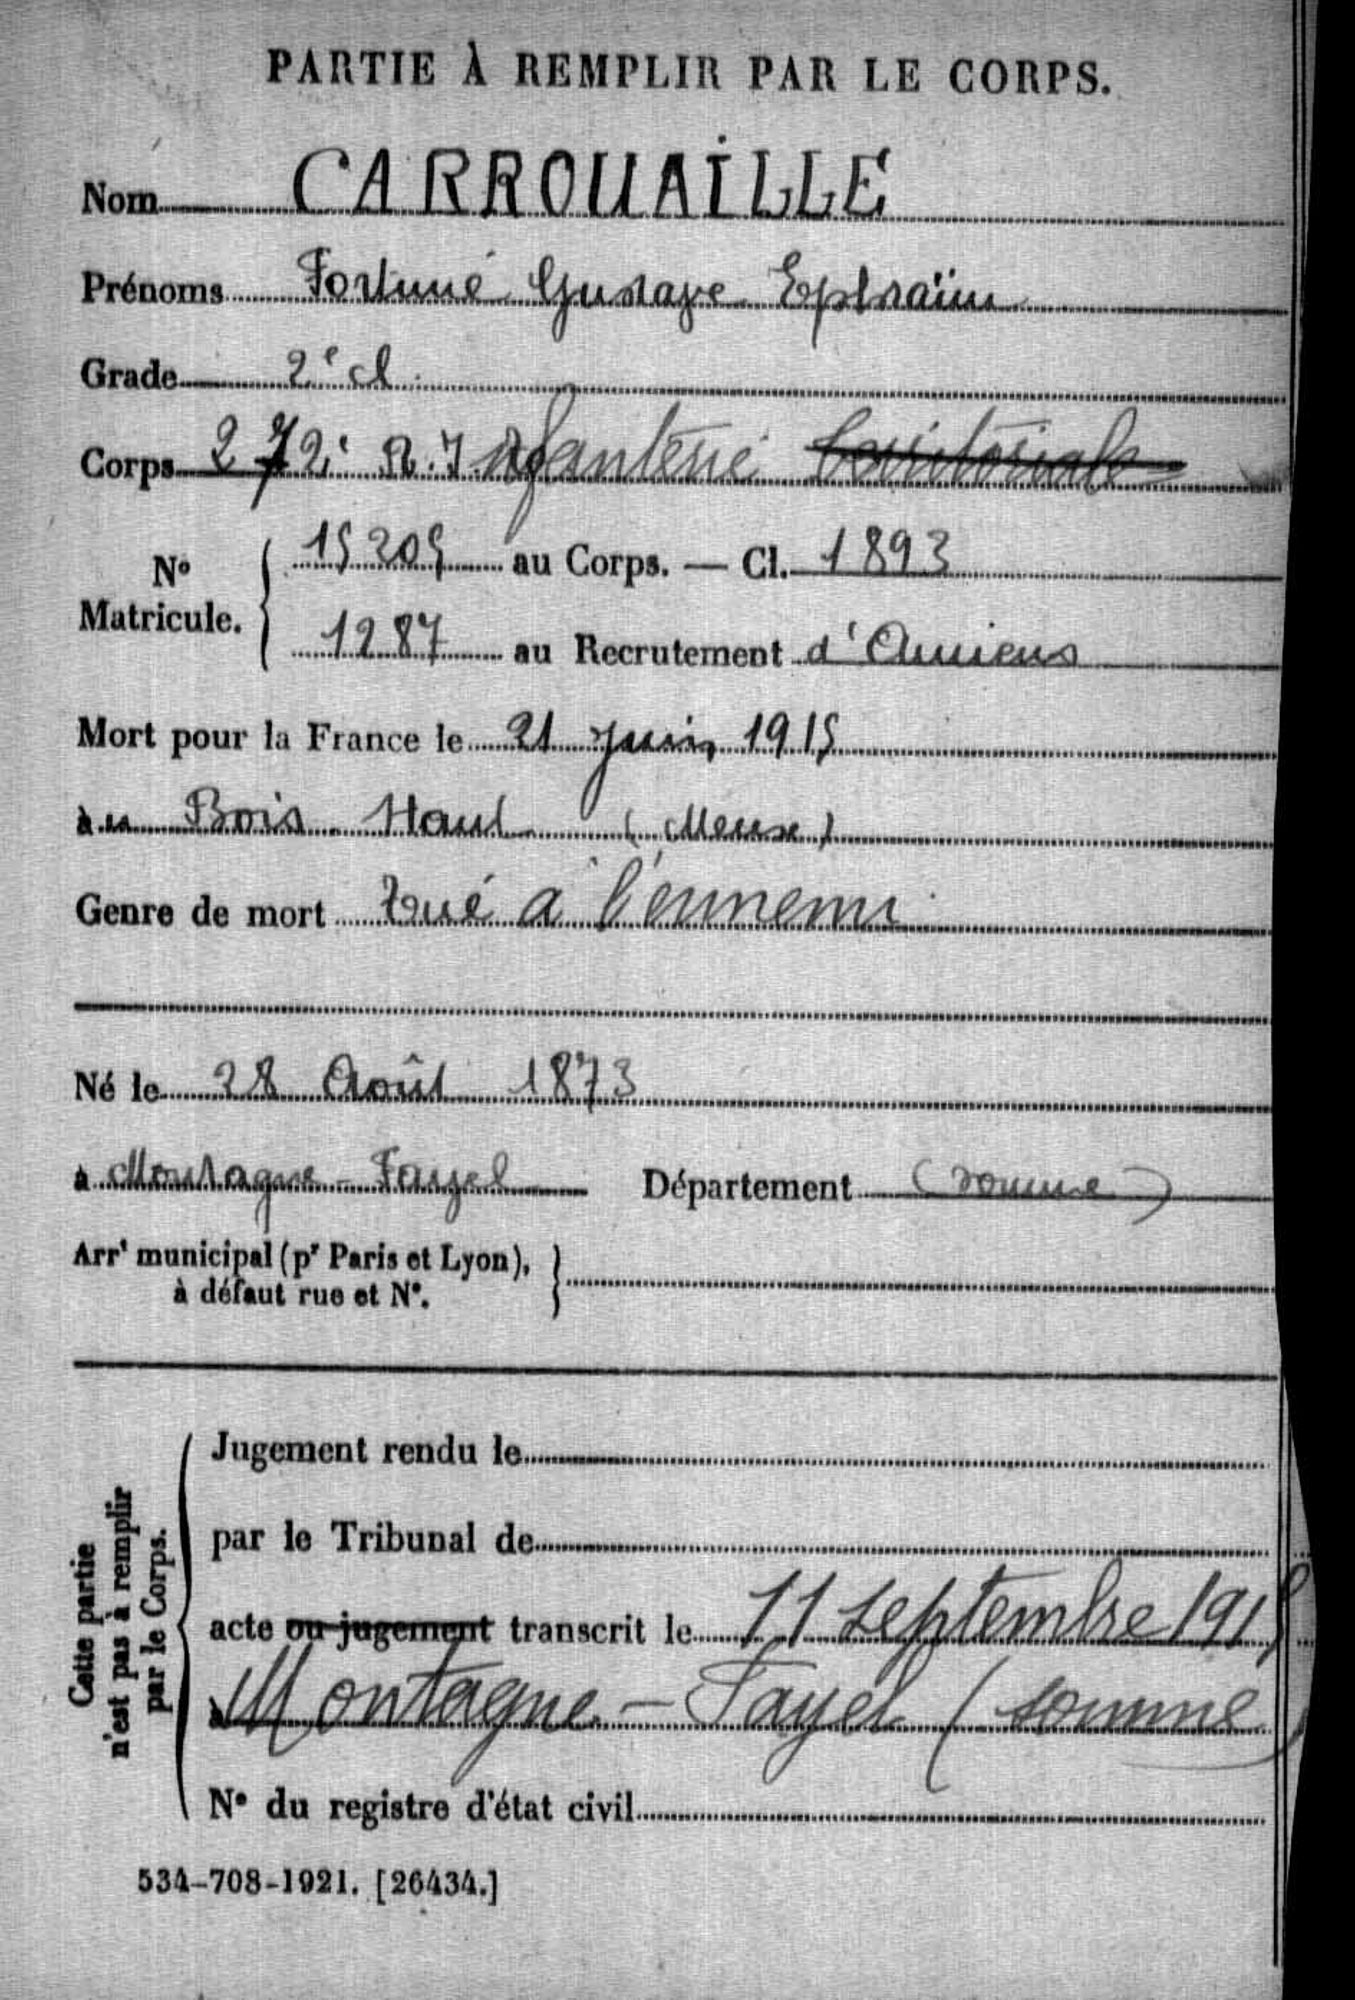 PARTIE À REMPLIR PAR LE CORPS.
Nom CARROUAILLE
Prénoms Fortuné Gustave Ephraïm
Grade 2e cl
Corps 272e R. Infanterie Territoriale
No Matricule. 15205 au Corps. — Cl. 1893
1287 au Recrutement d'Amiens
Mort pour la France le 21 juin 1915
au Bois Haut (Meuse)
Genre de mort Tué à l'ennemi
Né le 28 Août 1873
à Montagne-Fayel Département (Somme)
Arrt municipal (pr Paris et Lyon),
à défaut rue et No.
Cette partie n'est pas à remplir par le Corps.
Jugement rendu le
par le Tribunal de
acte ou jugement transcrit le 11 septembre 1915
à Montagne-Fayel (Somme)
No du registre d'état civil
534-708-1921. [26434.]